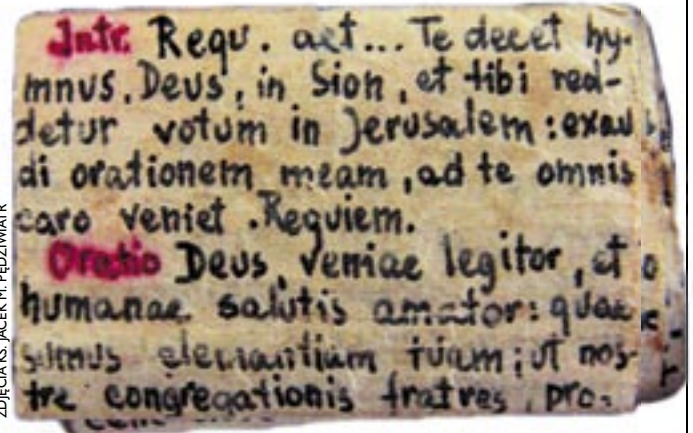 Intr. Requ. aet... Te decet hy-
mnus, Deus, in Sion, et tibi red-
detur votum in Jerusalem: exau
di orationem meam, ad te omnis
caro veniet. Requiem.
Oratio Deus, veniae legitor, et
humanae salutis amator: quae
sumus clemantiam tuam; ut nos-
tre congregationis fratres, pro-
ZDJĘCIA KS. JACEK M. PĘDZIWIATR